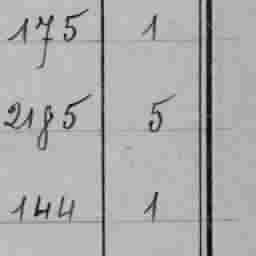 175 1
2185 5
144 1